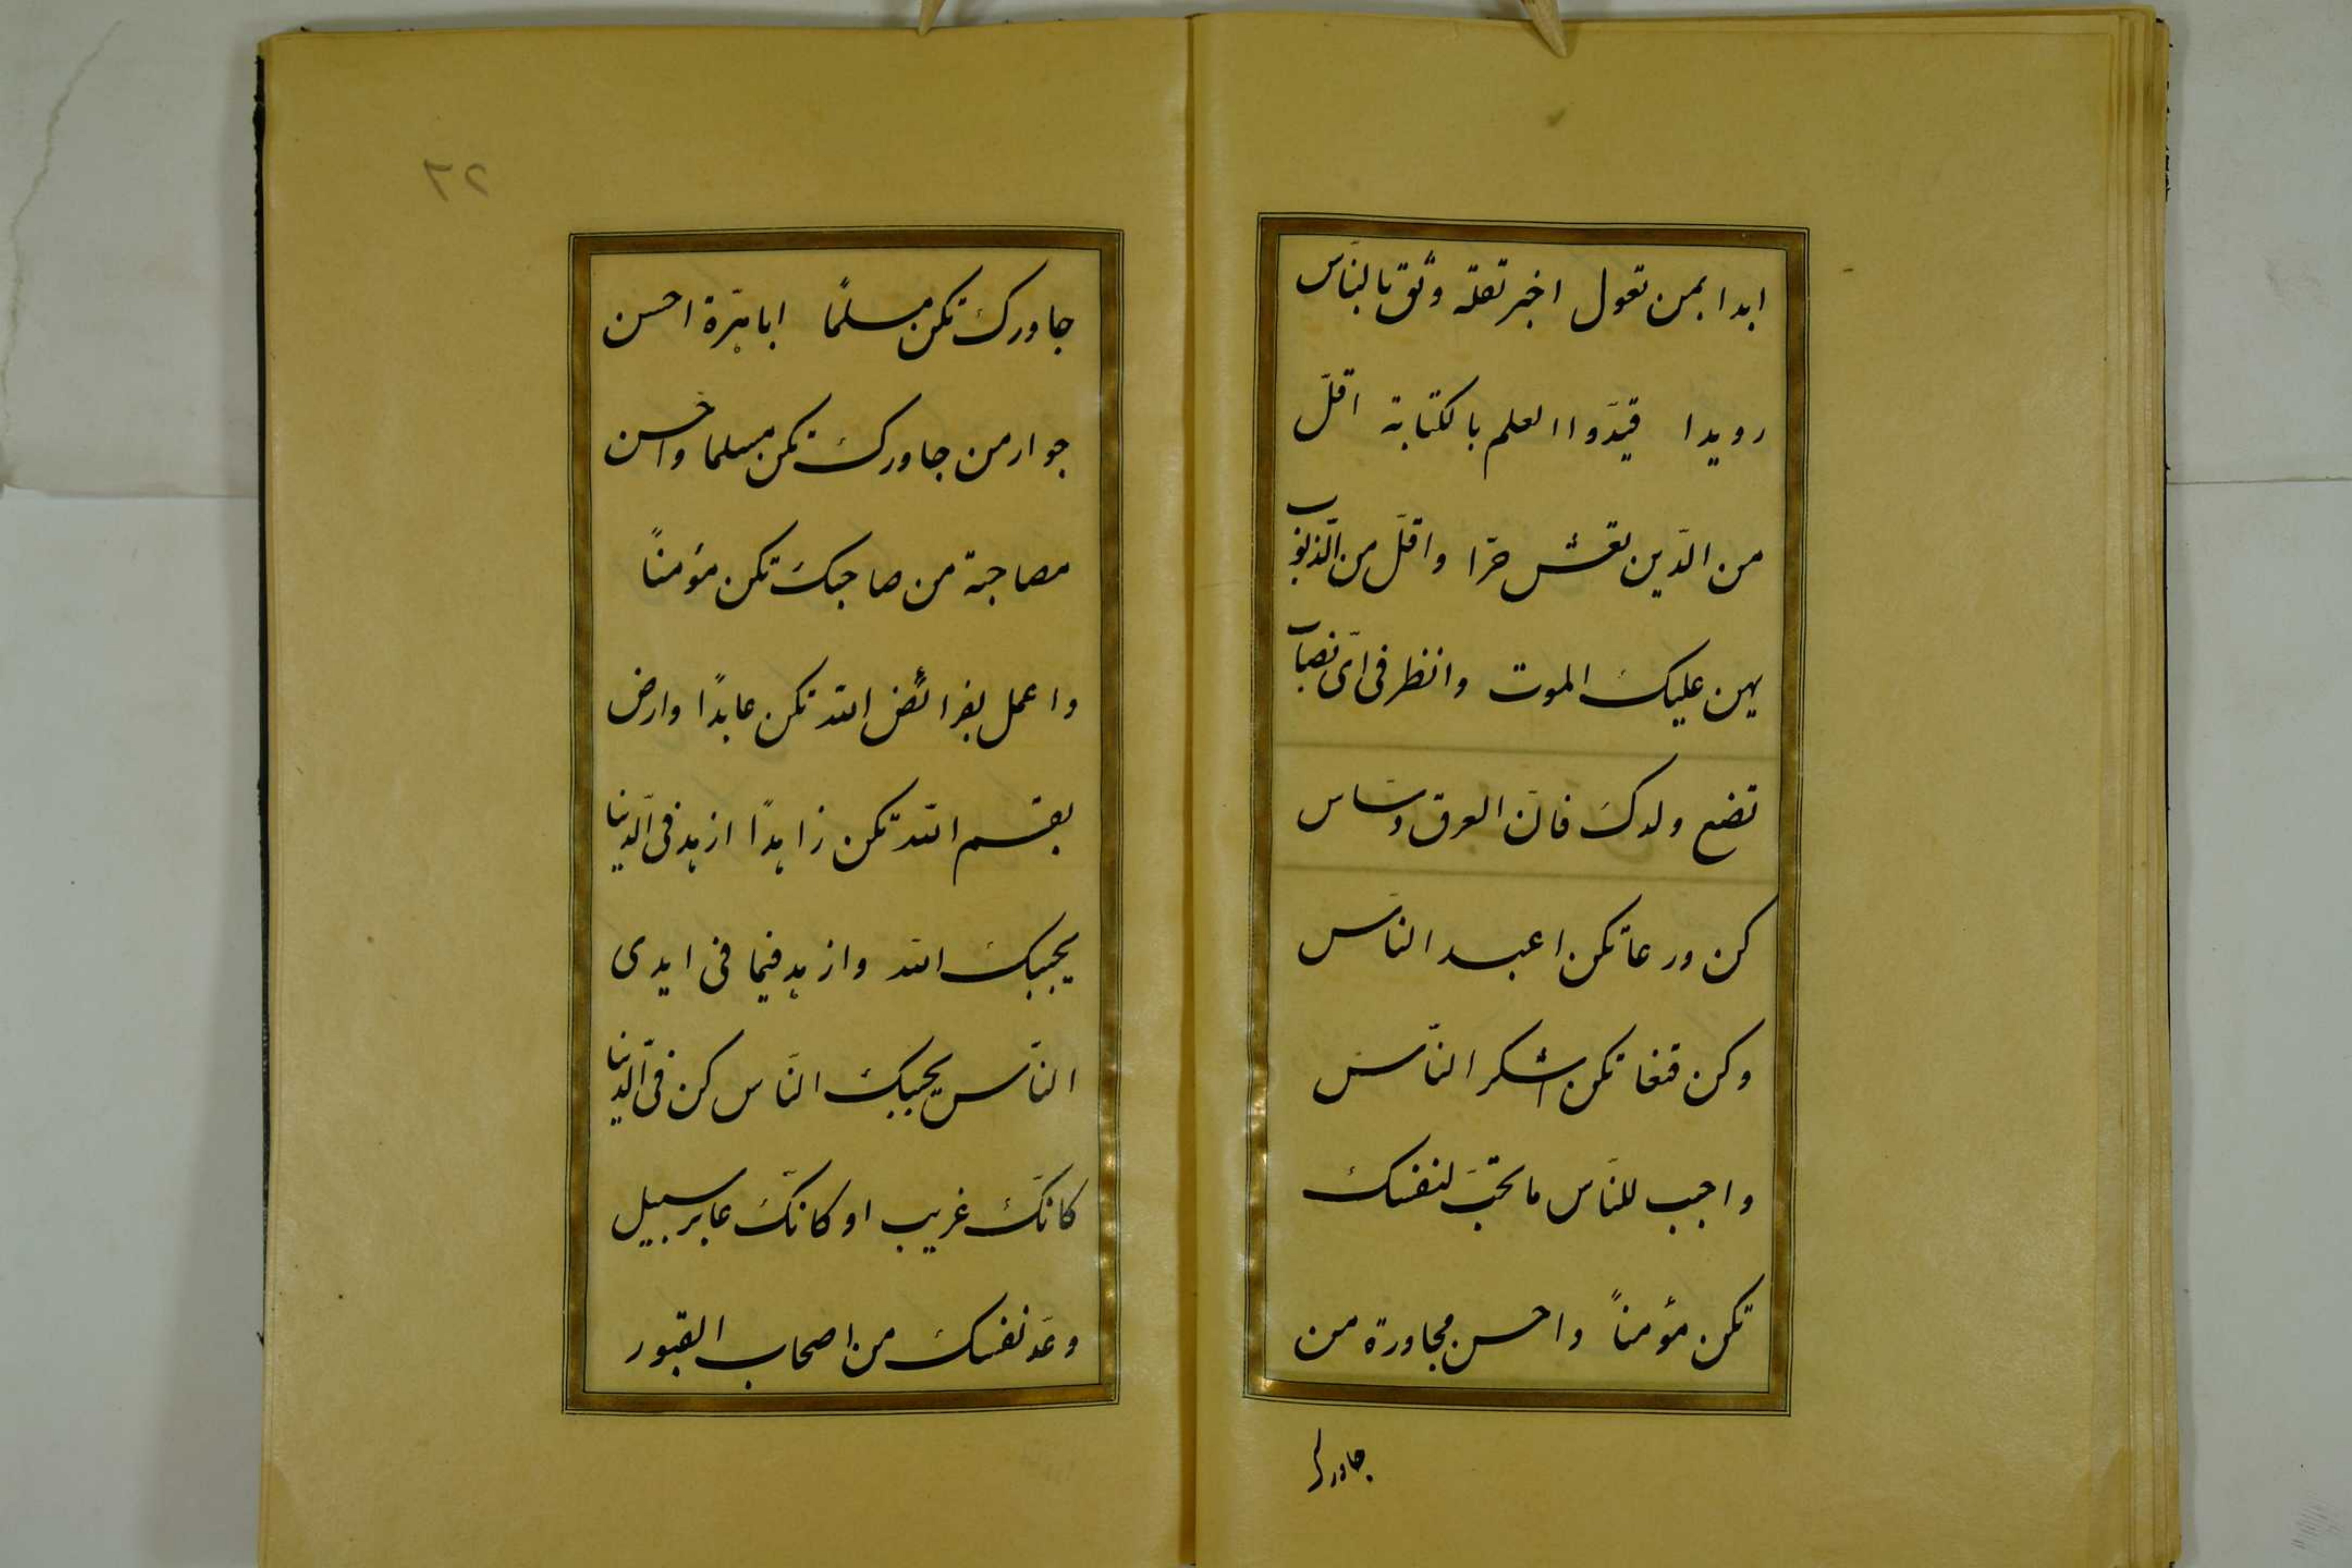 ابدا بمن تعول اخبر تقله وثق بالنّاس
رويدا قيّدوا العلم بالكتابة اقلّ
من الدّين تعش حرّا واقلّ من الذنوب
يهن عليك الموت وانظر فى اىّ نصاب
تضع ولدك فانّ العرق دساس
كن ورعا تكن اعبد النّاس
وكن قنعا تكن اشكر النّاس
واحبب للنّاس ما تحبّ لنفسك
تكن مؤمناً واحسن مجاورة من
جاورك
٢٢
جاورك تكن مسلمًا اباهرّة احسن
جوار من جاورك تكن مسلما واحسن
مصاحبة من صاحبك تكن مؤمناً
واعمل بفرائض الله تكن عابدًا وارض
بقسم الله تكن زاهدًا ازهد فى الدّنيا
يحببك الله وازهد فيما فى ايدى
النّاس يحببك النّاس كن فى الدّنيا
كانّك غريب او كانّك عابر سبيل
وعدّ نفسك من اصحاب القبور